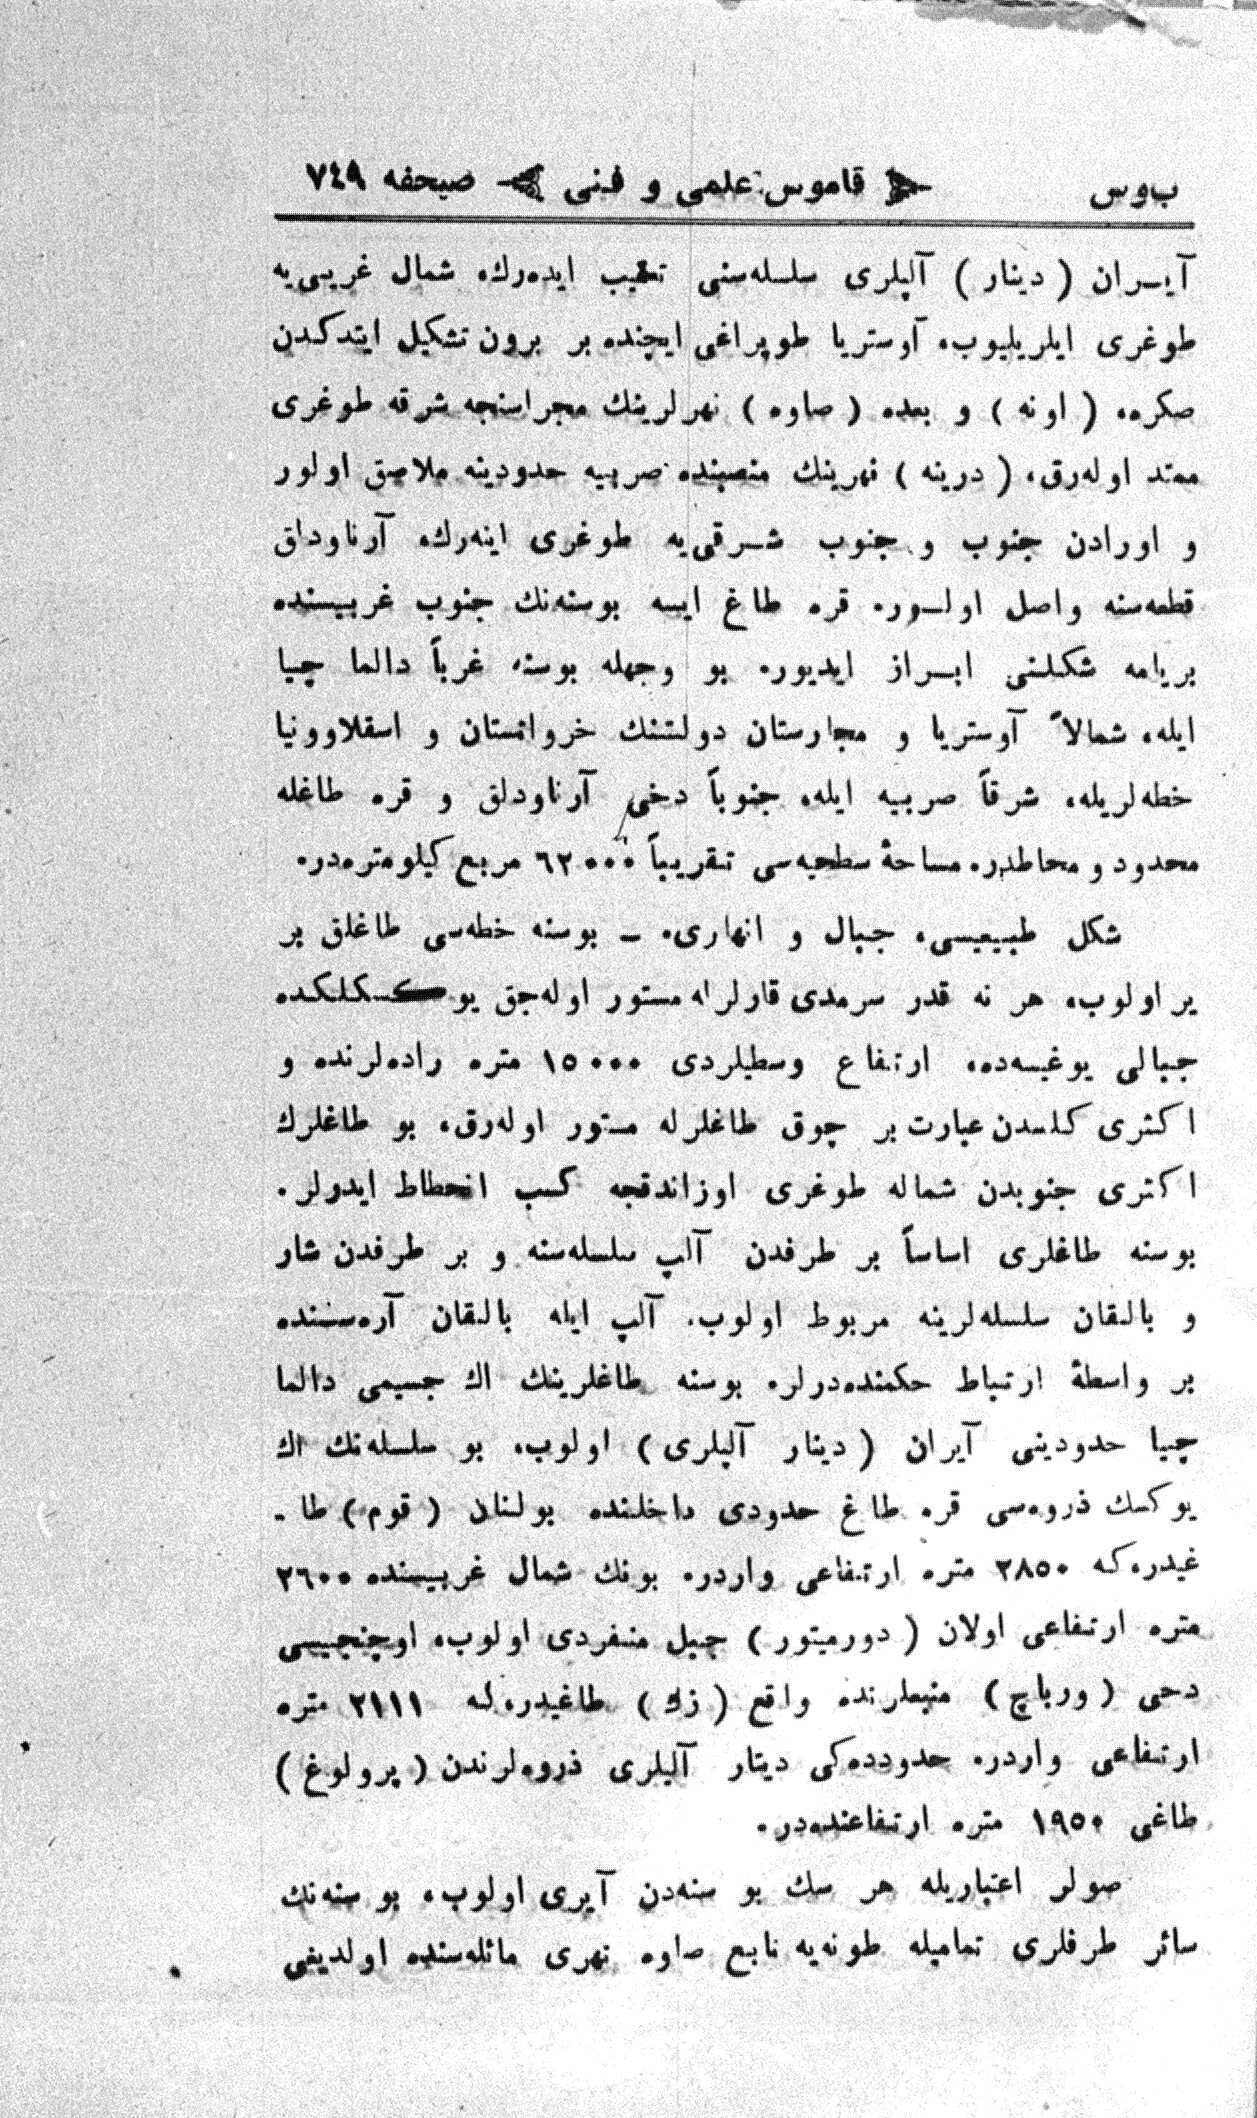 ب‌وس قاموس علمی و فنی صحیفه ٧٤٩
آیـران ( دینار ) آلپلری سلسله‌سنی تعقیب ایده‌رك، شمال غربی‌یه
طوغری ایلریلیوب، آوستریا طوپراغی ایچنده بر برون تشکیل ایتدکدن
صکره، ( اونه ) و بعده ( صاوه ) نهرلرینك مجراسنجه شرقه طوغری
ممتد اوله‌رق، ( درینه ) نهرینك منصبنده صربیه حدودینه ملاصق اولور
و اورادن جنوب و جنوب شـرقی‌یه طوغری اینه‌رك، آرناوداق
قطعه‌سنه واصل اولـور. قره طاغ ایسه بوسنه‌نك جنوب غربیسنده
بریامه شکلنی ابـراز ایدیور. بو وجهله بوسنه، غرباً دالما چیا
ایله، شمالاً آوستریا و مجارستان دولتنك خرواتستان و اسقلاوونیا
خطه‌لریله، شرقاً صربیه ایله، جنوباً دخی آرناودلق و قره طاغله
محدود و محاطدر. مساحهٔ سطحیه‌سی تقریباً ٦٢٠٠٠ مربع کیلومتره‌در.
شکل طبیعیسی، جبال و انهاری. ـ بوسنه خطه‌سی طاغلق بر
یر اولوب، هر نه قدر سرمدی قارلرله مستور اوله‌جق یوکسکلکده
جبالی یوغیسه‌ده، ارتفاع وسطیلردی ١٥٠٠٠ متره راده‌لرنده و
اکثری کلسدن عبارت بر چوق طاغلرله مستور اوله‌رق، بو طاغلرك
اکثری جنوبدن شماله طوغری اوزاندقجه کسب انحطاط ایدرلر.
بوسنه طاغلری اساساً بر طرفدن آلپ سلسله‌سنه و بر طرفدن شار
و بالقان سلسله‌لرینه مربوط اولوب، آلپ ایله بالقان آره‌سننده
بر واسطهٔ ارتباط حکمنده‌درلر. بوسنه طاغلرینك اك جسیمی دالما
چیا حدودینی آیران ( دینار آلپلری ) اولوب، بو سلسله‌نك اك
یوکسك ذروه‌سی قره طاغ حدودی داخلنده بولنان ( قوم ) طا ـ
غیدر، که ٢٨٥٠ متره ارتفاعی واردر. بونك شمال غربیسنده ٢٦٠٠
متره ارتفاعی اولان ( دورمیتور ) جبل منفردی اولوب، اوچنجیسی
دحی ( ورباج ) منبعلرنده واقع ( زك ) طاغیدر، که ٢١١١ متره
ارتفاعی واردر. حدودده‌کی دینار آلپلری ذروه‌لرندن ( پرولوغ )
طاغی ١٩٥٠ متره ارتفاعنده‌در.
صولر اعتباریله هر سك بو سنه‌دن آیری اولوب، بو سنه‌نك
سائر طرفلری تمامیله طونه‌یه تابع صاوه نهری مائله‌سنده اولدیغی